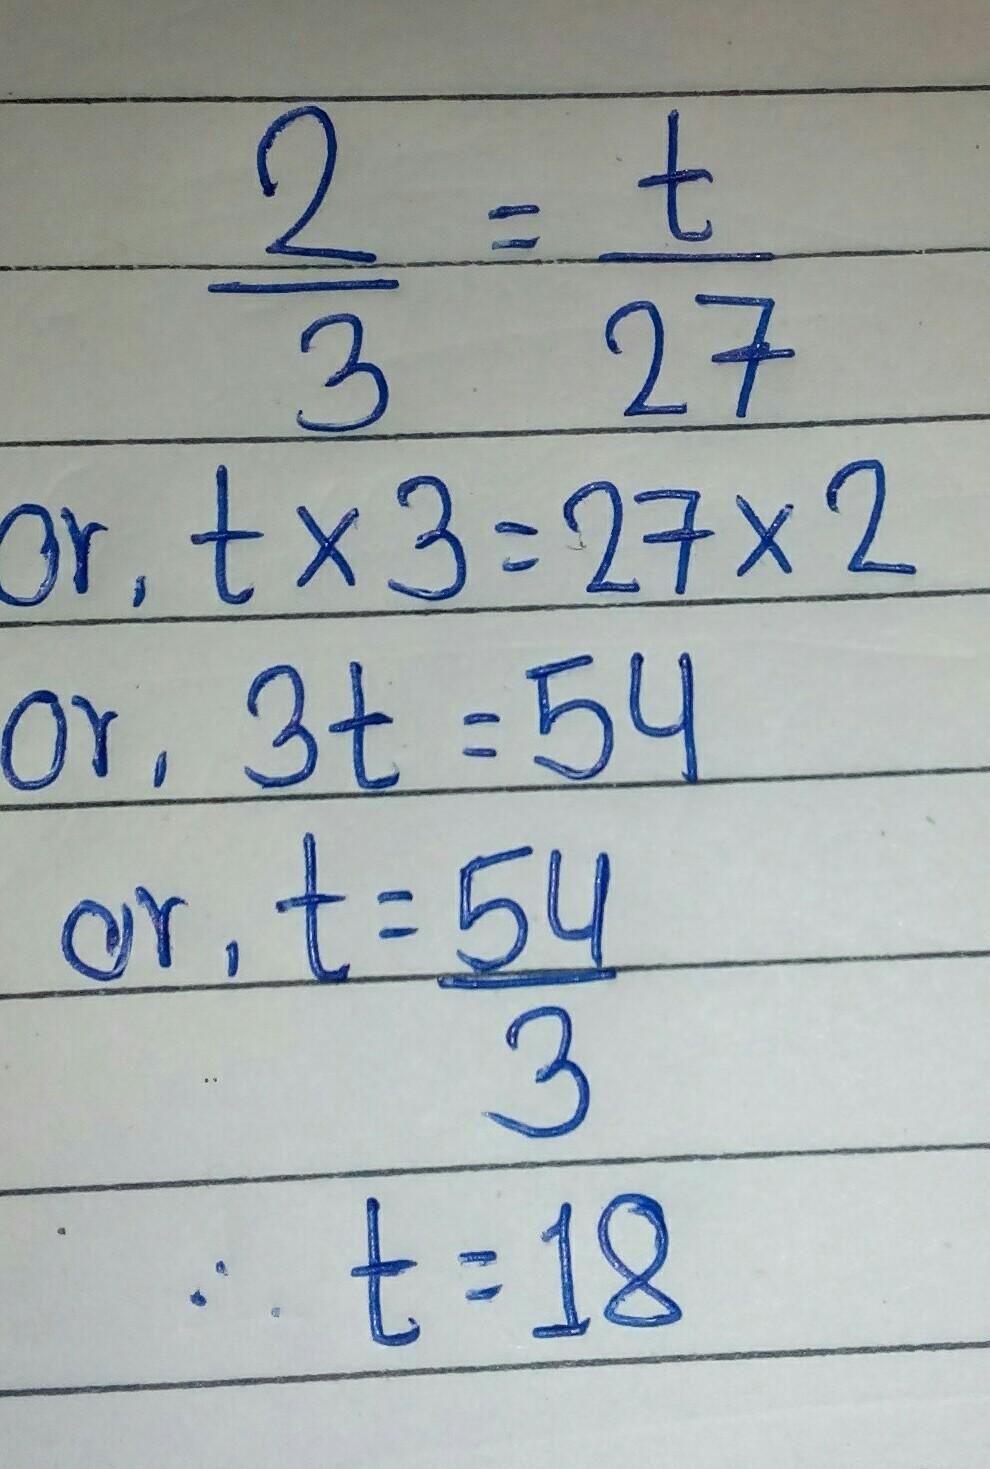 2/3 = t/27
or, t × 3 = 27 × 2
or, 3t = 54
or, t = 54/3
∴ t = 18